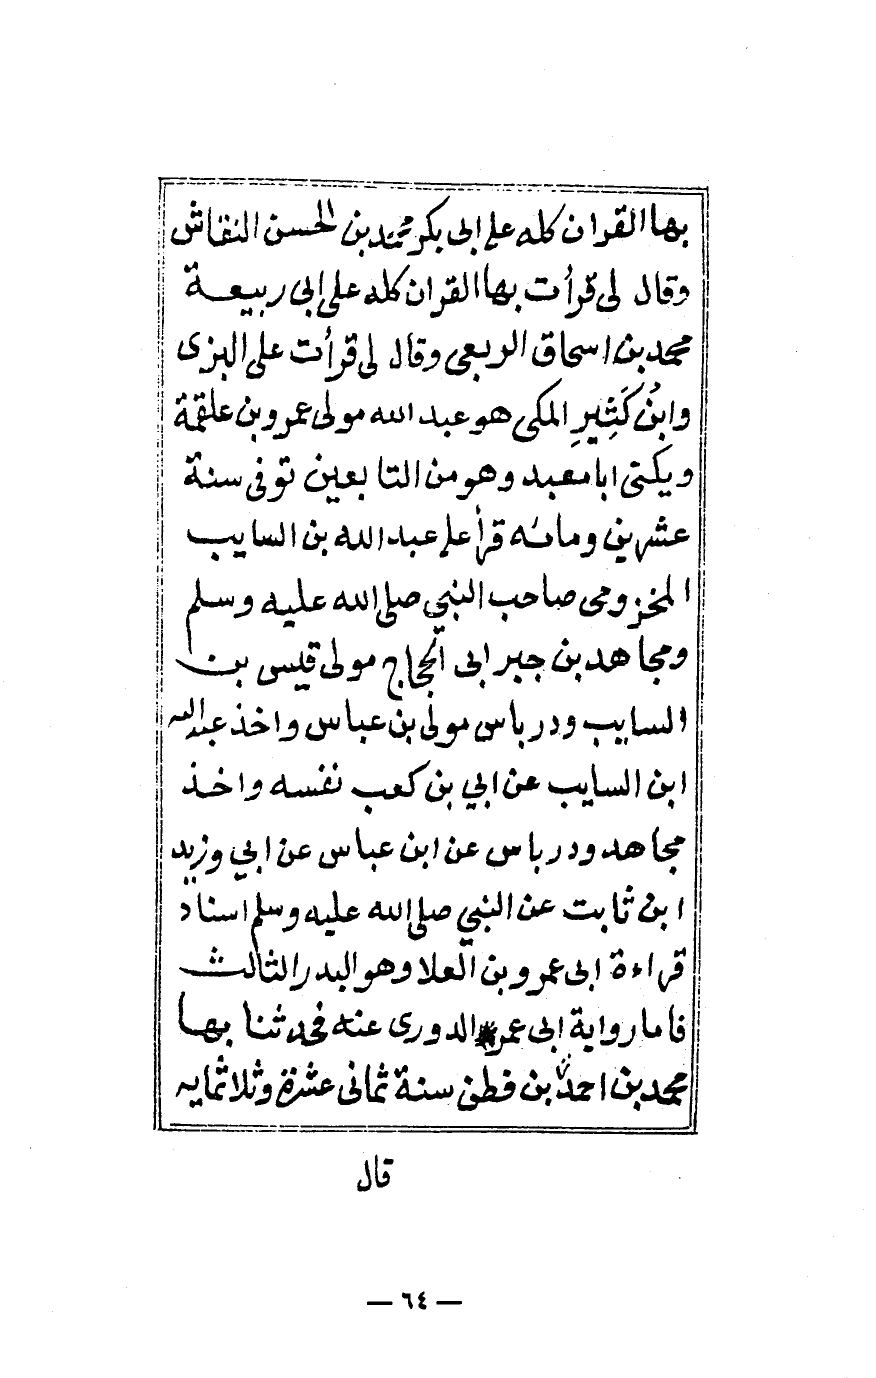 بها القران كله على ابى بكر محمد بن الحسن النقاش
وقال لى قرأت بها القران كله على ابى ربيعة
محمد بن اسحاق الربعى وقال لى قرأت على البزى
وابنُ كَثِيرِ المكى هو عبد الله مولى عمرو بن علقمة
ويكنى ابا معبد وهو من التابعين توفى سنة
عشرين ومائه قرأ على عبد الله بن السايب
المخزومى صاحب النبي صلى الله عليه وسلم
ومجاهد بن جبر ابى الحجاج مولى قيس بن
السايب ودرباس مولى بن عباس واخذ عبد الله
ابن السايب عن ابي بن كعب نفسه واخذ
مجاهد ودرباس عن ابن عباس عن ابي وزيد
ابن ثابت عن النبي صلى الله عليه وسلم اسناد
قراءة ابى عمرو بن العلا وهو البدر الثالث
فاما رواية ابى عمر الدورى عنه فحدثنا بها
محمد بن احمد بن قطن سنة ثمانى عشرة وثلاثمايه
قال
— ٦٤ —